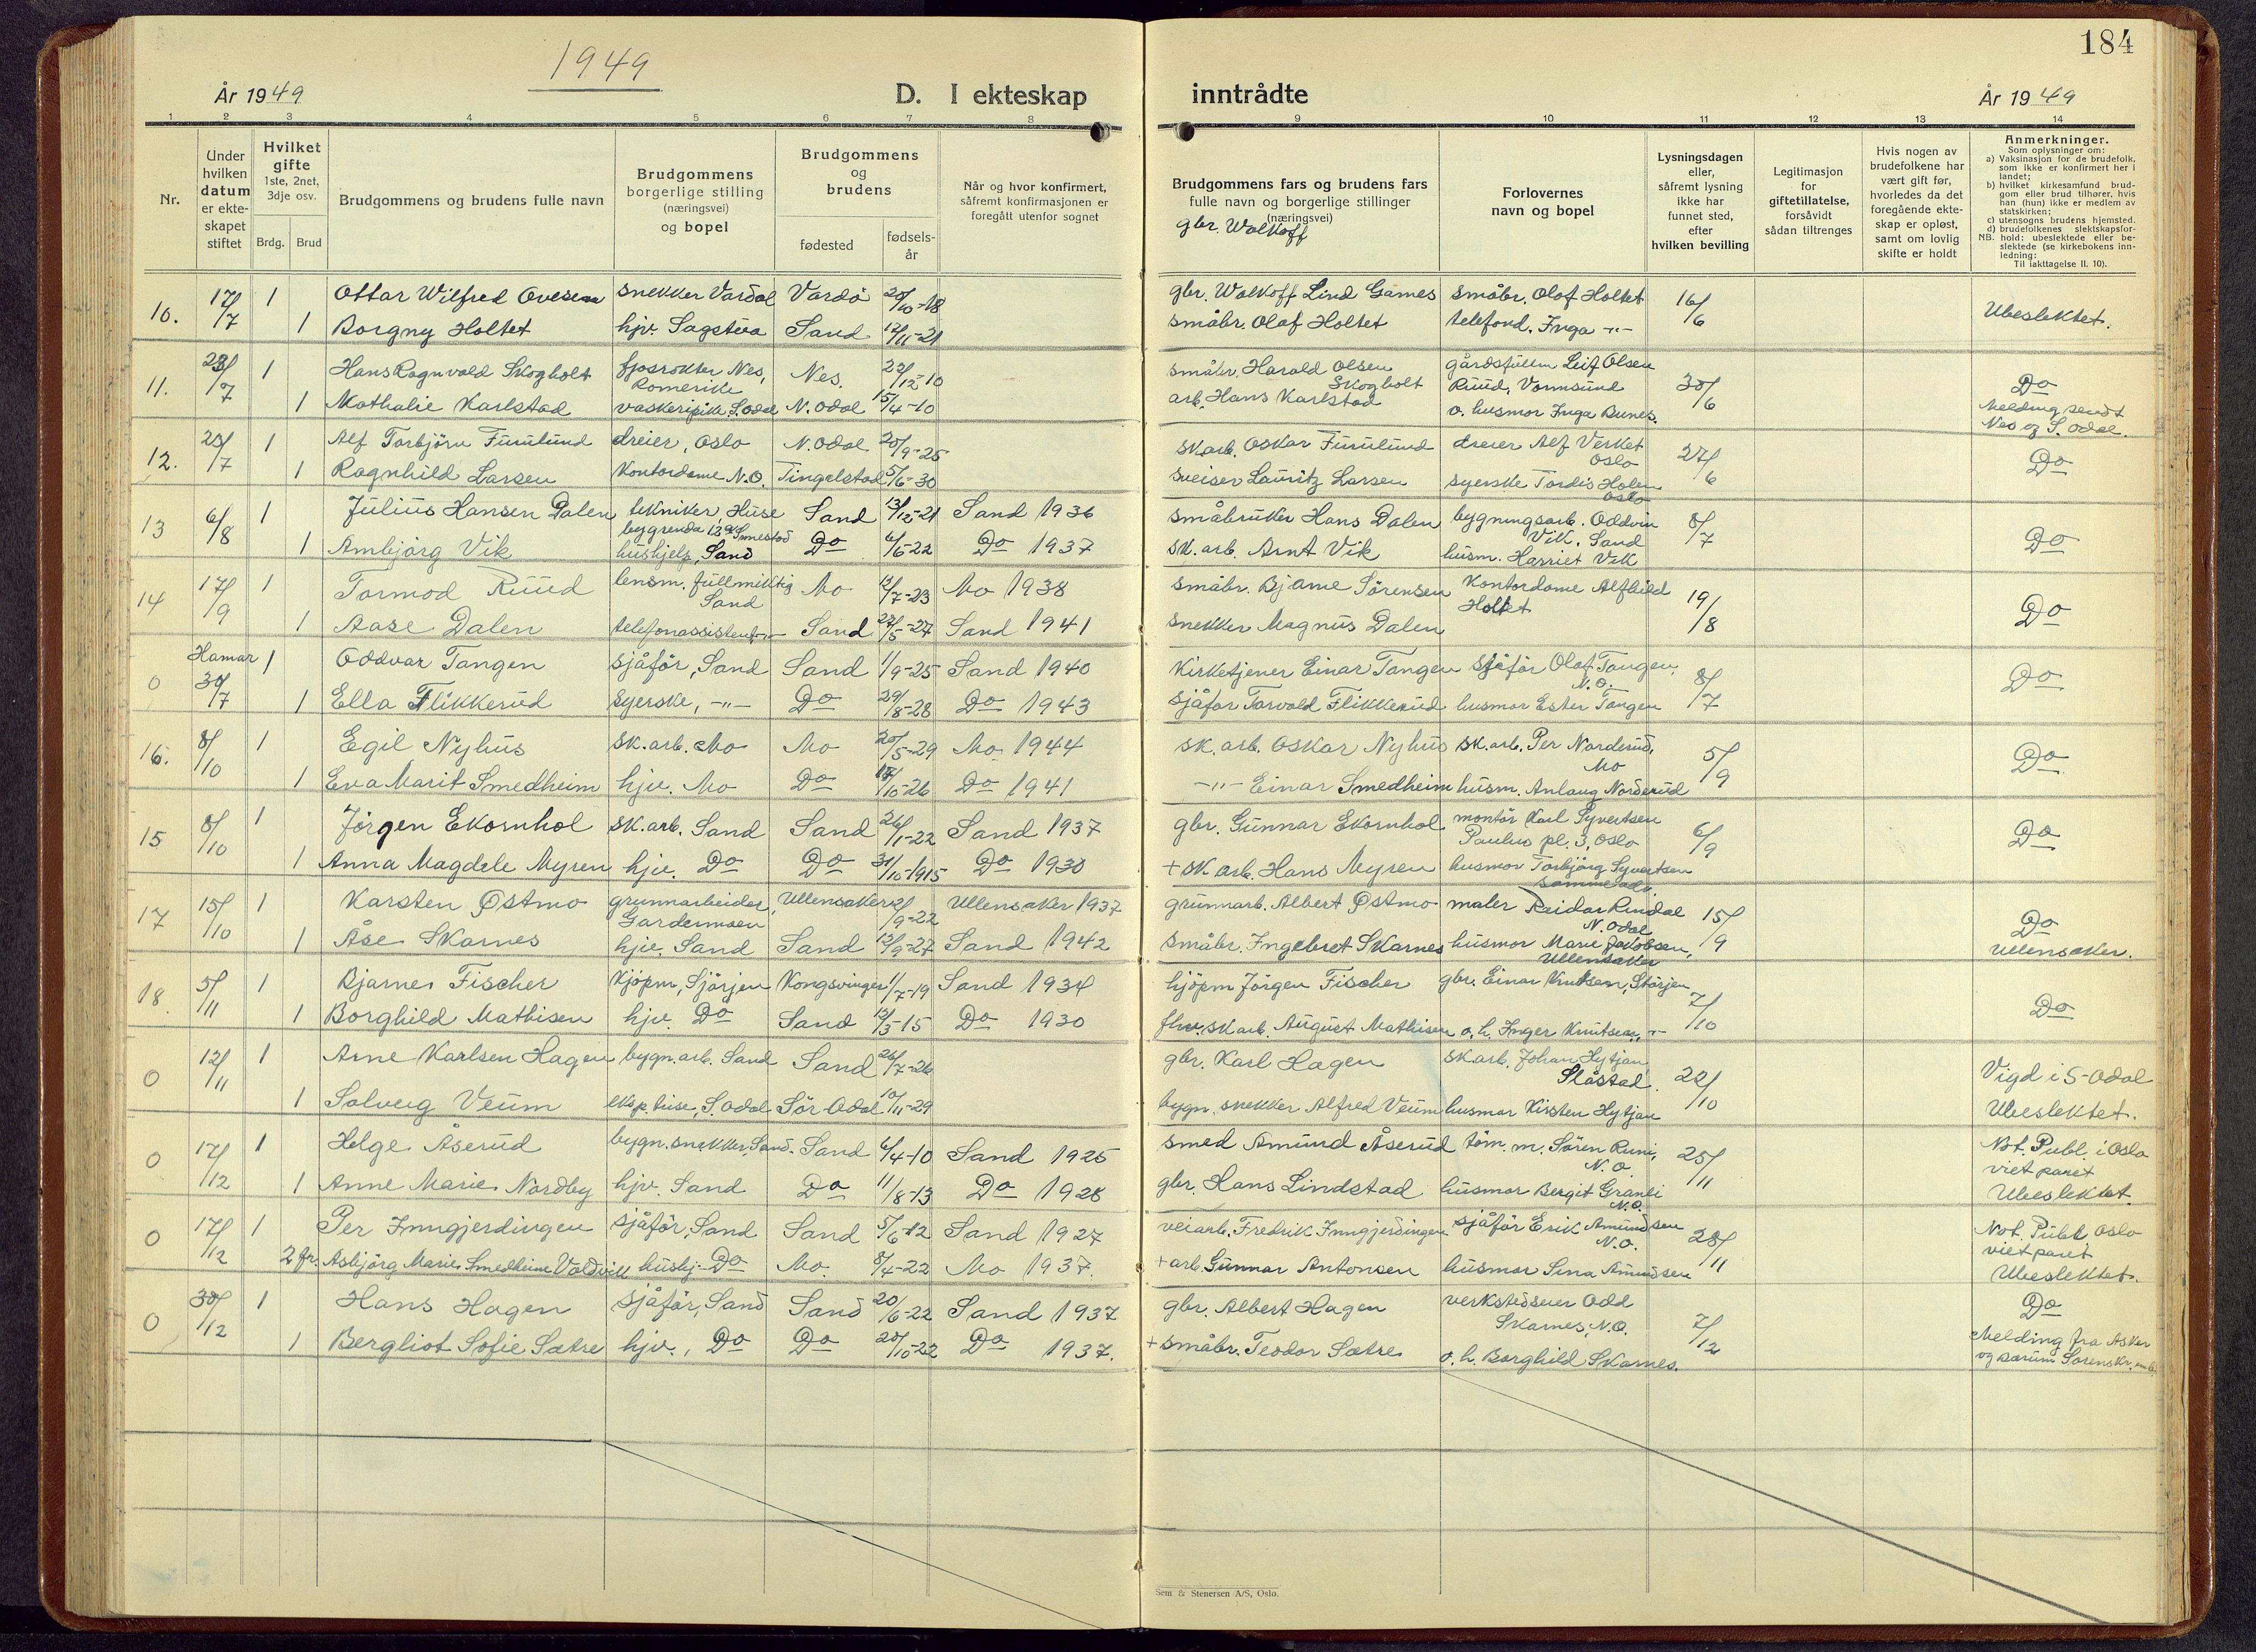 184
1949
År 1949
D. I ekteskap
inntrådte
År 1949
1 2 3 4 5 6 7 8
9 10 11 12 13 14
Nr.
Under hvilken datum er ekteskapet stiftet
Hvilket gifte
1ste, 2net, 3dje osv.
Brdg. Brud
Brudgommens og brudens fulle navn
Brudgommens borgerlige stilling (næringsvei) og bopel
Brudgommens og brudens
fødested
fødselsår
Når og hvor konfirmert, såfremt konfirmasjonen er foregått utenfor sognet
Brudgommens fars og brudens fars fulle navn og borgerlige stillinger (næringsvei)
gbr. Walkoff
Forlovernes navn og bopel
Lysningsdagen eller, såfremt lysning ikke har funnet sted, efter hvilken bevilling
Legitimasjon for giftetillatelse, forsåvidt sådan tiltrenges
Hvis nogen av brudefolkene har vært gift før, hvorledes da det foregående ekteskap er opløst, samt om lovlig skifte er holdt
Anmerkninger.
Som oplysninger om:
a) Vaksinasjon for de brudefolk, som ikke er konfirmert her i landet;
b) hvilket kirkesamfund brudgom eller brud tilhører, hvis han (hun) ikke er medlem av statskirken;
c) utensogns brudens hjemsted.
d) brudefolkenes slektskapsforhold: ubeslektede eller beslektede (se kirkebokens innledning:
NB.
Til iakttagelse II. 10).
10. 17/7 1 Ottar Wilfred Ovesen snekker Vardal Vardö 20/10-18 gbr. Walkoff Lind Games småbr. Olof Holtet 16/6 Ubeslektet.
1 Borgny Holtet hjv. Sagstua Sand 12/11-21 småbr. Olaf Holtet telefond. Inga -"-
11. 23/7 1 Hans Ragnvald Skogholt fjosrökter Nes, Romerike Nes. 22/12-10 småbr. Harald Olsen Skogholt gårdsfullm Leif Olsen Ruud, Vormsund 30/6 Do
1 Mathalie Karlstad vaskeripike S. Odal N. Odal 15/4-10 arb. Hans Karlstad o. husmor Inga Bunes. Melding sendt Nes og S. Odal.
12. 23/7 1 Alf Torbjörn Furulund dreier, Oslo N. Odal 20/9-25 sk.arb. Oskar Furulund dreier Alf Verket Oslo 27/6 Do
1 Ragnhild Larsen Kontordame N.O. Tingelstad 5/6-30 sveiser Lauritz Larsen syerske Tordis Holen Oslo
13 6/8 1 Julius Hansen Dalen tekniker, Huse bygrenda Sand 13/12-21 Sand 1936 småbruker Hans Dalen bygningsarb. Oddvin Vik. Sand 8/7 Do
1 Ambjörg Vik hushjelp, Sand Do 6/5-22 Do 1937 sk. arb. Arnt Vik husm. Harriet Vik
14 17/9 1 Tormod Ruud lensm. fullmektig Sand Mo 13/7-23 Mo 1938 småbr. Bjarne Sörensen Kontordame Alfhild Holtet 19/8 Do
1 Aase Dalen telefonassistent -"- Sand 22/5-27 Sand 1941 snekker Magnus Dalen
0 Hamar 30/7 1 Oddvar Tangen sjåför, Sand Sand 1/9-25 Sand 1940 Kirketjener Einar Tangen sjåför Olaf Tangen, N.O. 8/7 Do
1 Ella Flikkerud syerske, -"- Do 29/8-28 Do 1943 sjåför Torvald Flikkerud husmor Ester Tangen
16. 8/10 1 Egil Nyhus sk. arb. Mo Mo 20/5-29 Mo 1944 sk. arb. Oskar Nyhus sk. arb. Per Norderud, Mo 5/9 Do
1 Eva Marit Smedheim hjv. Mo Do 18/10-26 Do 1941 -"- Einar Smedheim husm. Anlaug Norderud
15 8/10 1 Jörgen Ekornhol sk. arb. Sand Sand 26/1-22 Sand 1937 gbr. Gunnar Ekornhol montör Karl Syvertsen Paulus pl. 3, Oslo 6/9 Do
1 Anna Magdele Myren hjv. Do Do 31/10-1915 Do 1930 + sk. arb. Hans Myren husmor Torbjörg Syvertsen samme adr.
17 15/10 1 Karsten Østmo grunnarbeider, Gardermoen Ullensaker 2/9-22 Ullensaker 1937 grunnarb. Albert Østmo maler Reidar Rindal N. Odal 15/9 Do
1 Åse Skarnes hjv. Sand Sand 12/9-27 Sand 1942 småbr. Ingebret Skarnes husmor Marie Jakobsen, Ullensaker Ullensaker.
18. 5/11 1 Bjarne Fischer kjöpm, Sjörjen Kongsvinger 1/7-19 Sand 1934 kjöpm Jörgen Fischer gbr. Einar Knutsen, Störjen 7/10 Do
1 Borghild Mathisen hjv. Do Sand 13/3-15 Do 1930 fhv. sk. arb. August Mathisen o. h. Inger Knutsen, -"-
0 12/11 1 Arne Karlsen Hagen bygn. arb. Sand Sand 26/7-26 gbr. Karl Hagen sk.arb. Johan Hytjan, Slåstad. 22/10 Vigd i S-Odal
1 Solveig Veum eksp. tuse, S. Odal Sör Odal 10/11-29 bygn. snekker Alfred Veum husmor Kirsten Hytjan Ubeslektet.
0 17/12 1 Helge Åserud bygn. snekker, Sand. Sand 6/4-10 Sand 1925 smed Amund Åserud töm. m. Sören Runi, N.O. 25/11 Not. Publ. i Oslo viet paret
1 Anne Marie Nordby hjv. Sand Do 11/8-13 Do 1928 gbr. Hans Lindstad husmor Bergit Granli N.O. Ubeslektet.
0 17/12 1 Per Inngjerdingen sjåför, Sand Sand 5/6-12 Sand 1927 veiarb. Fredrik Inngjerdingen sjåför Erik Amundsen N.O. 28/11 Not. Publ Oslo viet paret
2 fr. Asbjörg Marie Smedheim Voldvik hushj. Do Mo. 8/4-22 Mo 1937. + arb. Gunnar Antonsen husmor Sina Amundsen Ubeslektet.
0 30/12 1 Hans Hagen sjåför, Sand Sand 20/6-22 Sand 1937 gbr. Albert Hagen verkstedseier Odd Skarnes, N.O. 7/12 Do
1 Bergliot Sofie Sætre hjv., Do Do 20/10-22 Do 1937. + småbr. Teodor Sætre o. h. Borghild Skarnes. Melding fra Asker og Bærum Sorenskr. emb.
Sem & Stenersen A/S, Oslo.